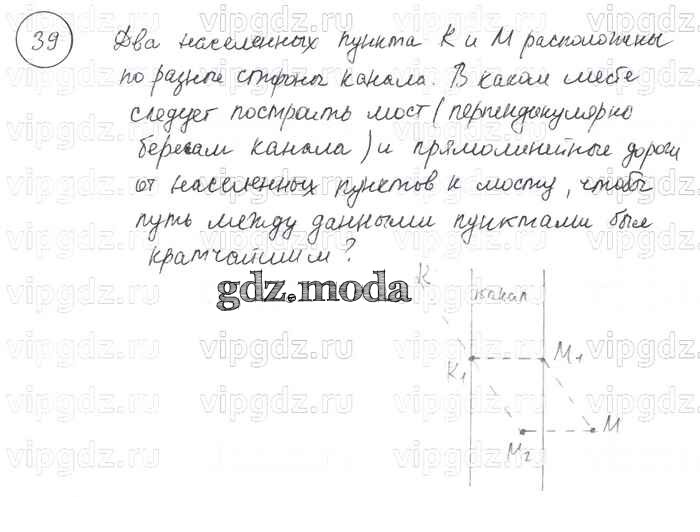 39
Два населенных пункта К и М расположены
по разные стороны канала. В каком месте
следует построить мост (перпендикулярно
берегам канала) и прямолинейные дороги
от населенных пунктов к мосту, чтобы
путь между данными пунктами был
кратчайшим?
К
канал
gdz.moda
К1
М1
М2
М
vipgdz.ru